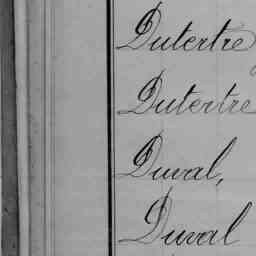 Dutertre
Dutertre
Duval,
Duval